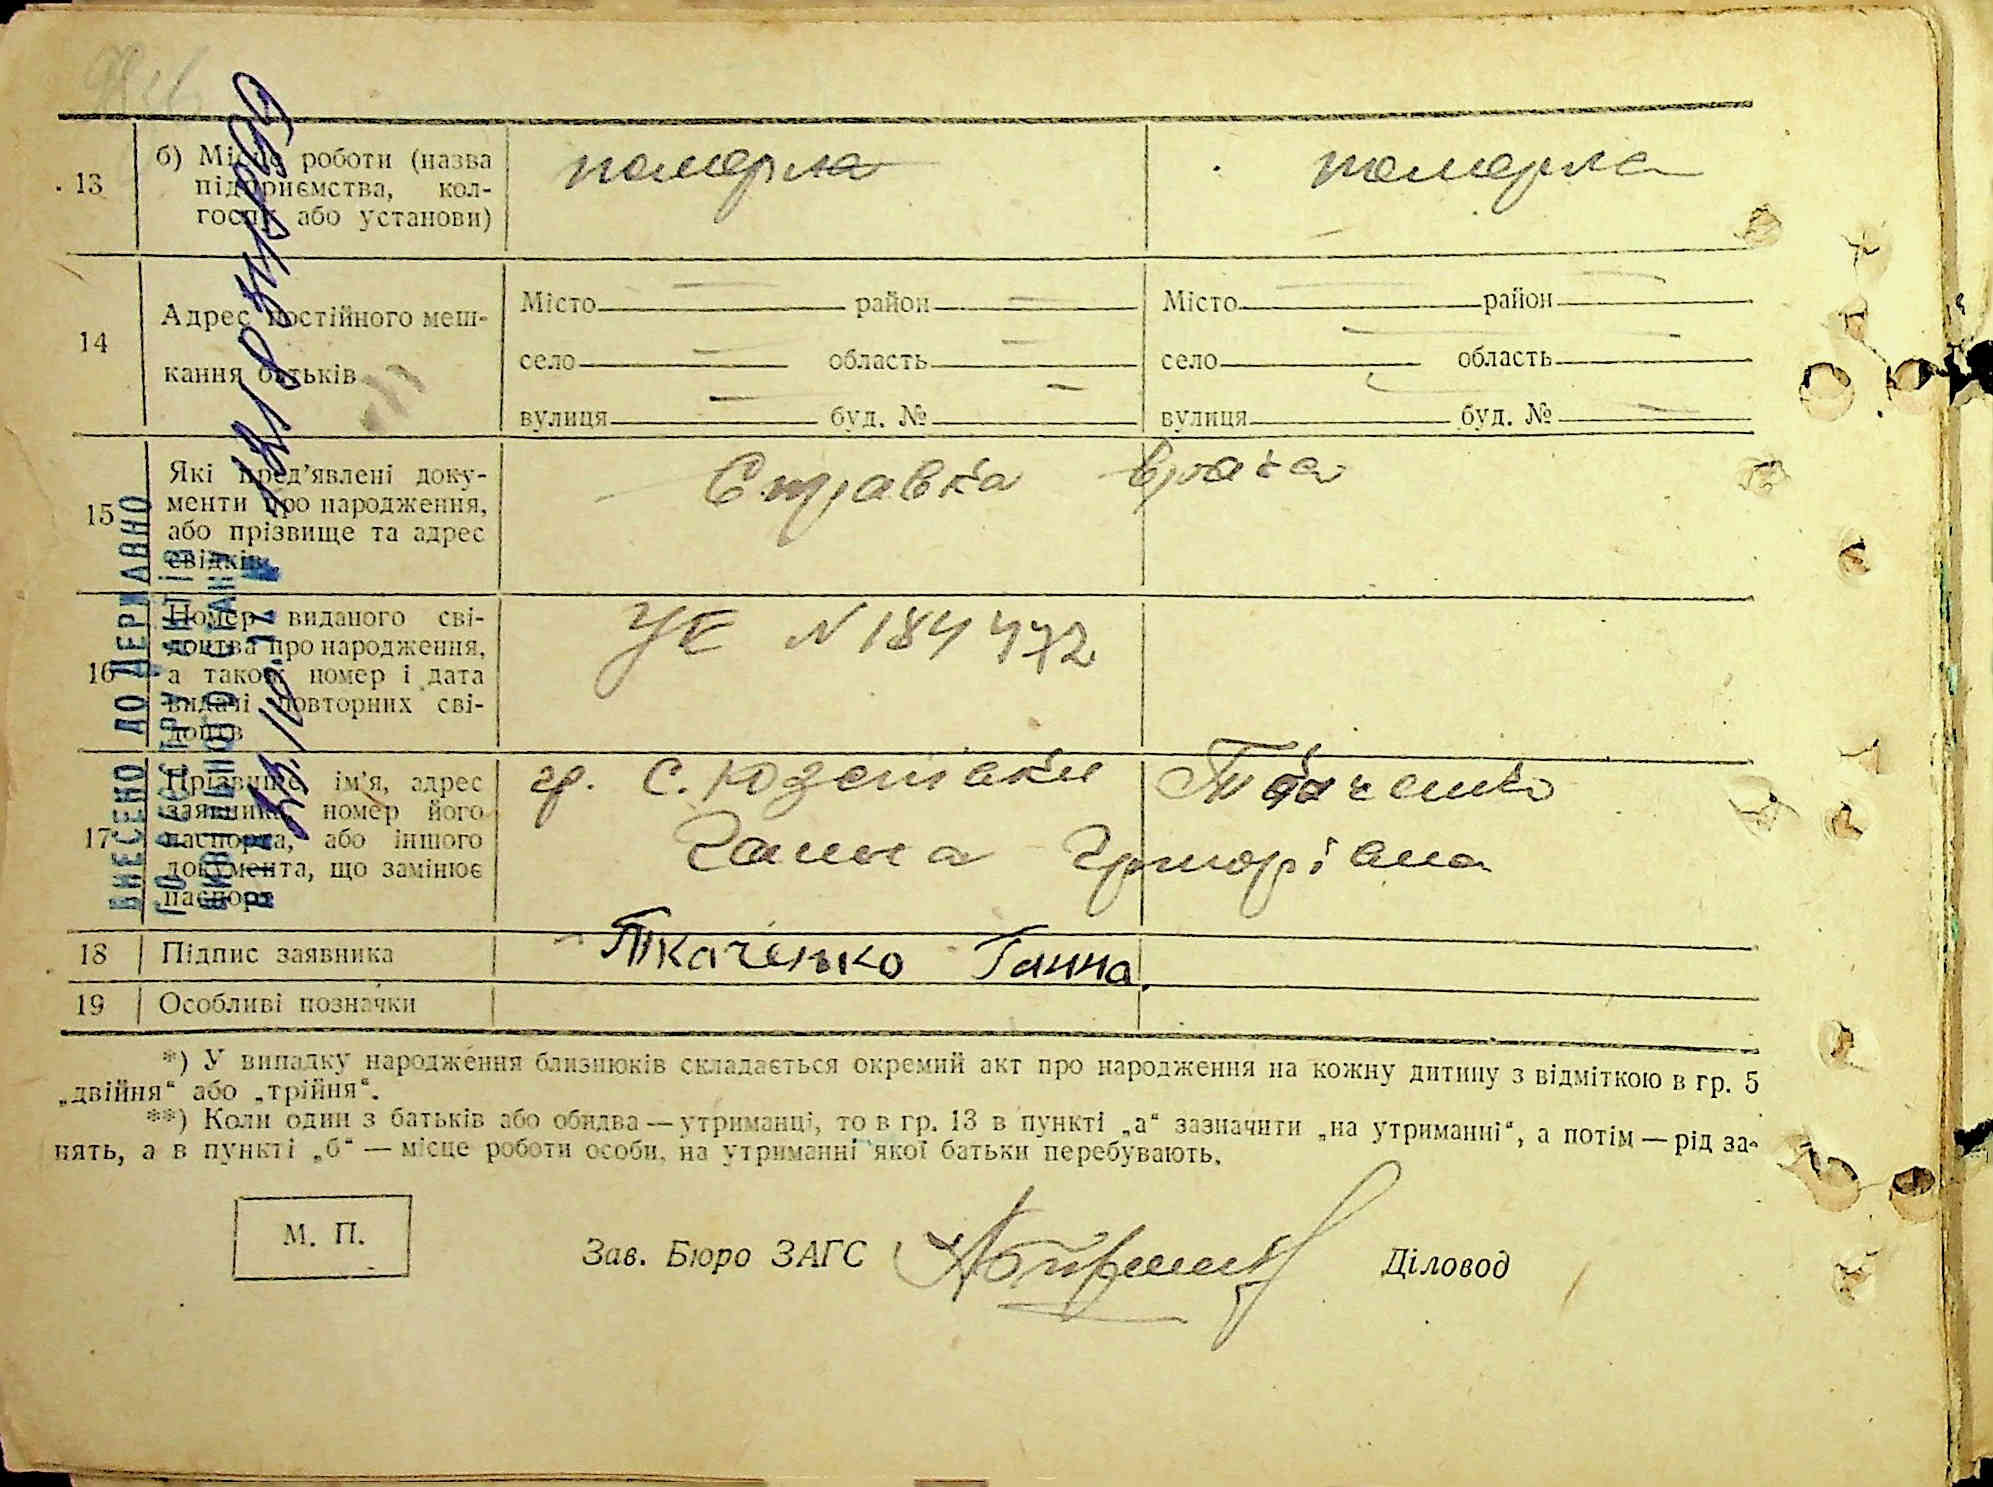 13
б) Місце роботи (назва
підприємства, кол-
госпи або установи)
померла
померла
14
Адрес постійного меш-
кання батьків
Місто район
село область
вулиця буд. №
Місто район
село область
вулиця буд. №
15
Які пред’явлені доку-
менти про народження,
або прізвище та адрес
свідків
Справка врача
16
Номер виданого сві-
доцтва про народження,
а також номер і дата
видачі повторних сві-
доцтв
УЕ N 184 472
17
Прізвище, ім’я, адрес
заявника, номер його
паспорта, або іншого
документа, що замінює
паспорт
гр. с. Ткаченко
Ганна Григорівна
18
Підпис заявника
Ткаченко Ганна.
19
Особливі позначки
*) У випадку народження близнюків складається окремий акт про народження на кожну дитину з відміткою в гр. 5
„двійня“ або „трійня“.
**) Коли один з батьків або обидва — утриманці, то в гр. 13 в пункті „а“ зазначити „на утриманні“, а потім — рід за-
нять, а в пункті „б“ — місце роботи особи, на утриманні якої батьки перебувають.
М. П.
Зав. Бюро ЗАГС
Діловод
ВНЕСЕНО ДО ДЕРЖАВНО
ГО РЕЄСТРУ АКТІВ
ЦИВІЛЬНОГО СТАНУ